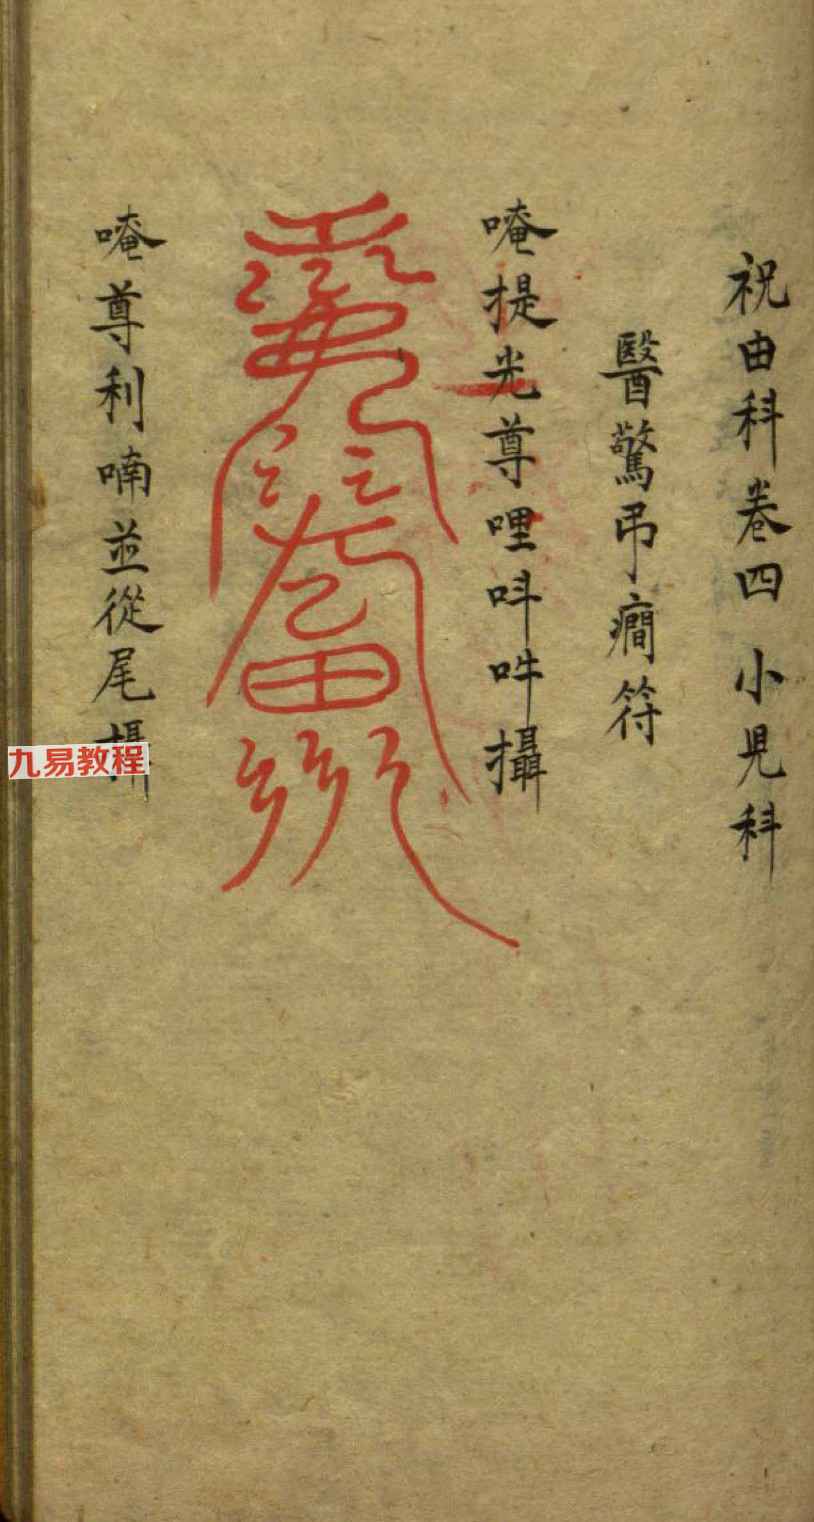 祝由科卷四 小児科
醫驚弔癇符
唵提光尊哩呌吽攝
唵尊利喃並從尾攝
九易教程